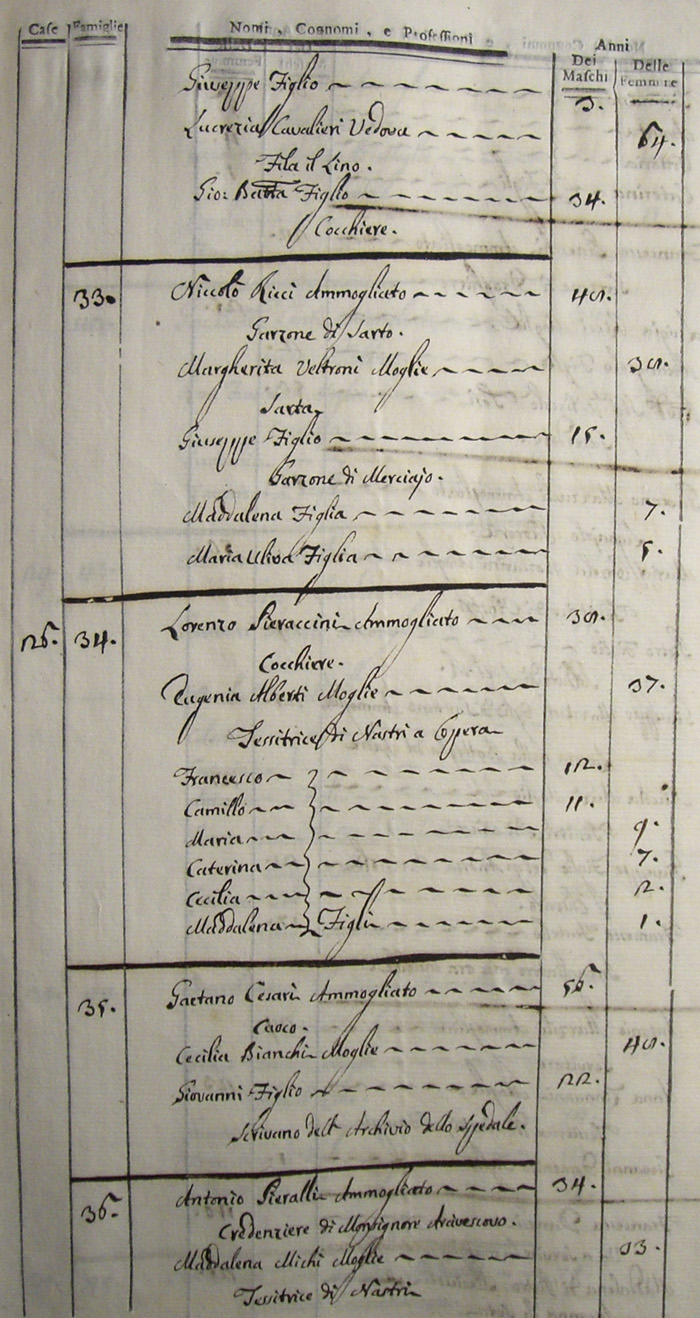 Case Famiglie Nomi, Cognomi, e Professioni Anni
Dei Maschi Delle Femmine
Giuseppe Figlio 3.
Lucrezia Cavalieri Vedova 64.
Fila il Lino.
Gio: Batta Figlio 34.
Cocchiere.
33. Niccolò Ricci Ammogliato
Garzone di Sarto.
Margherita Veltroni Moglie
Sarta
Giuseppe Figlio 15.
Garzone di Merciajo.
Maddalena Figlia 7.
Maria Uliva Figlia 5.
34. Lorenzo Pieraccini Ammogliato
Cocchiere.
Eugenia Alberti Moglie 37.
Tessitrice di Nastri a Opera
Francesco 12.
Camillo 11.
Maria 9.
Caterina 7.
Cecilia 2.
Maddalena Figli 1.
35. Gaetano Cesari Ammogliato 56.
Cuoco.
Cecilia Bianchi Moglie
Giovanni Figlio 22.
Scrivano dell Archivio dello Spedale.
36. Antonio Pieralli Ammogliato 34.
Credenziere di Monsignore Arcivescovo.
Maddalena Michi Moglie 33.
Tessitrice di Nastri